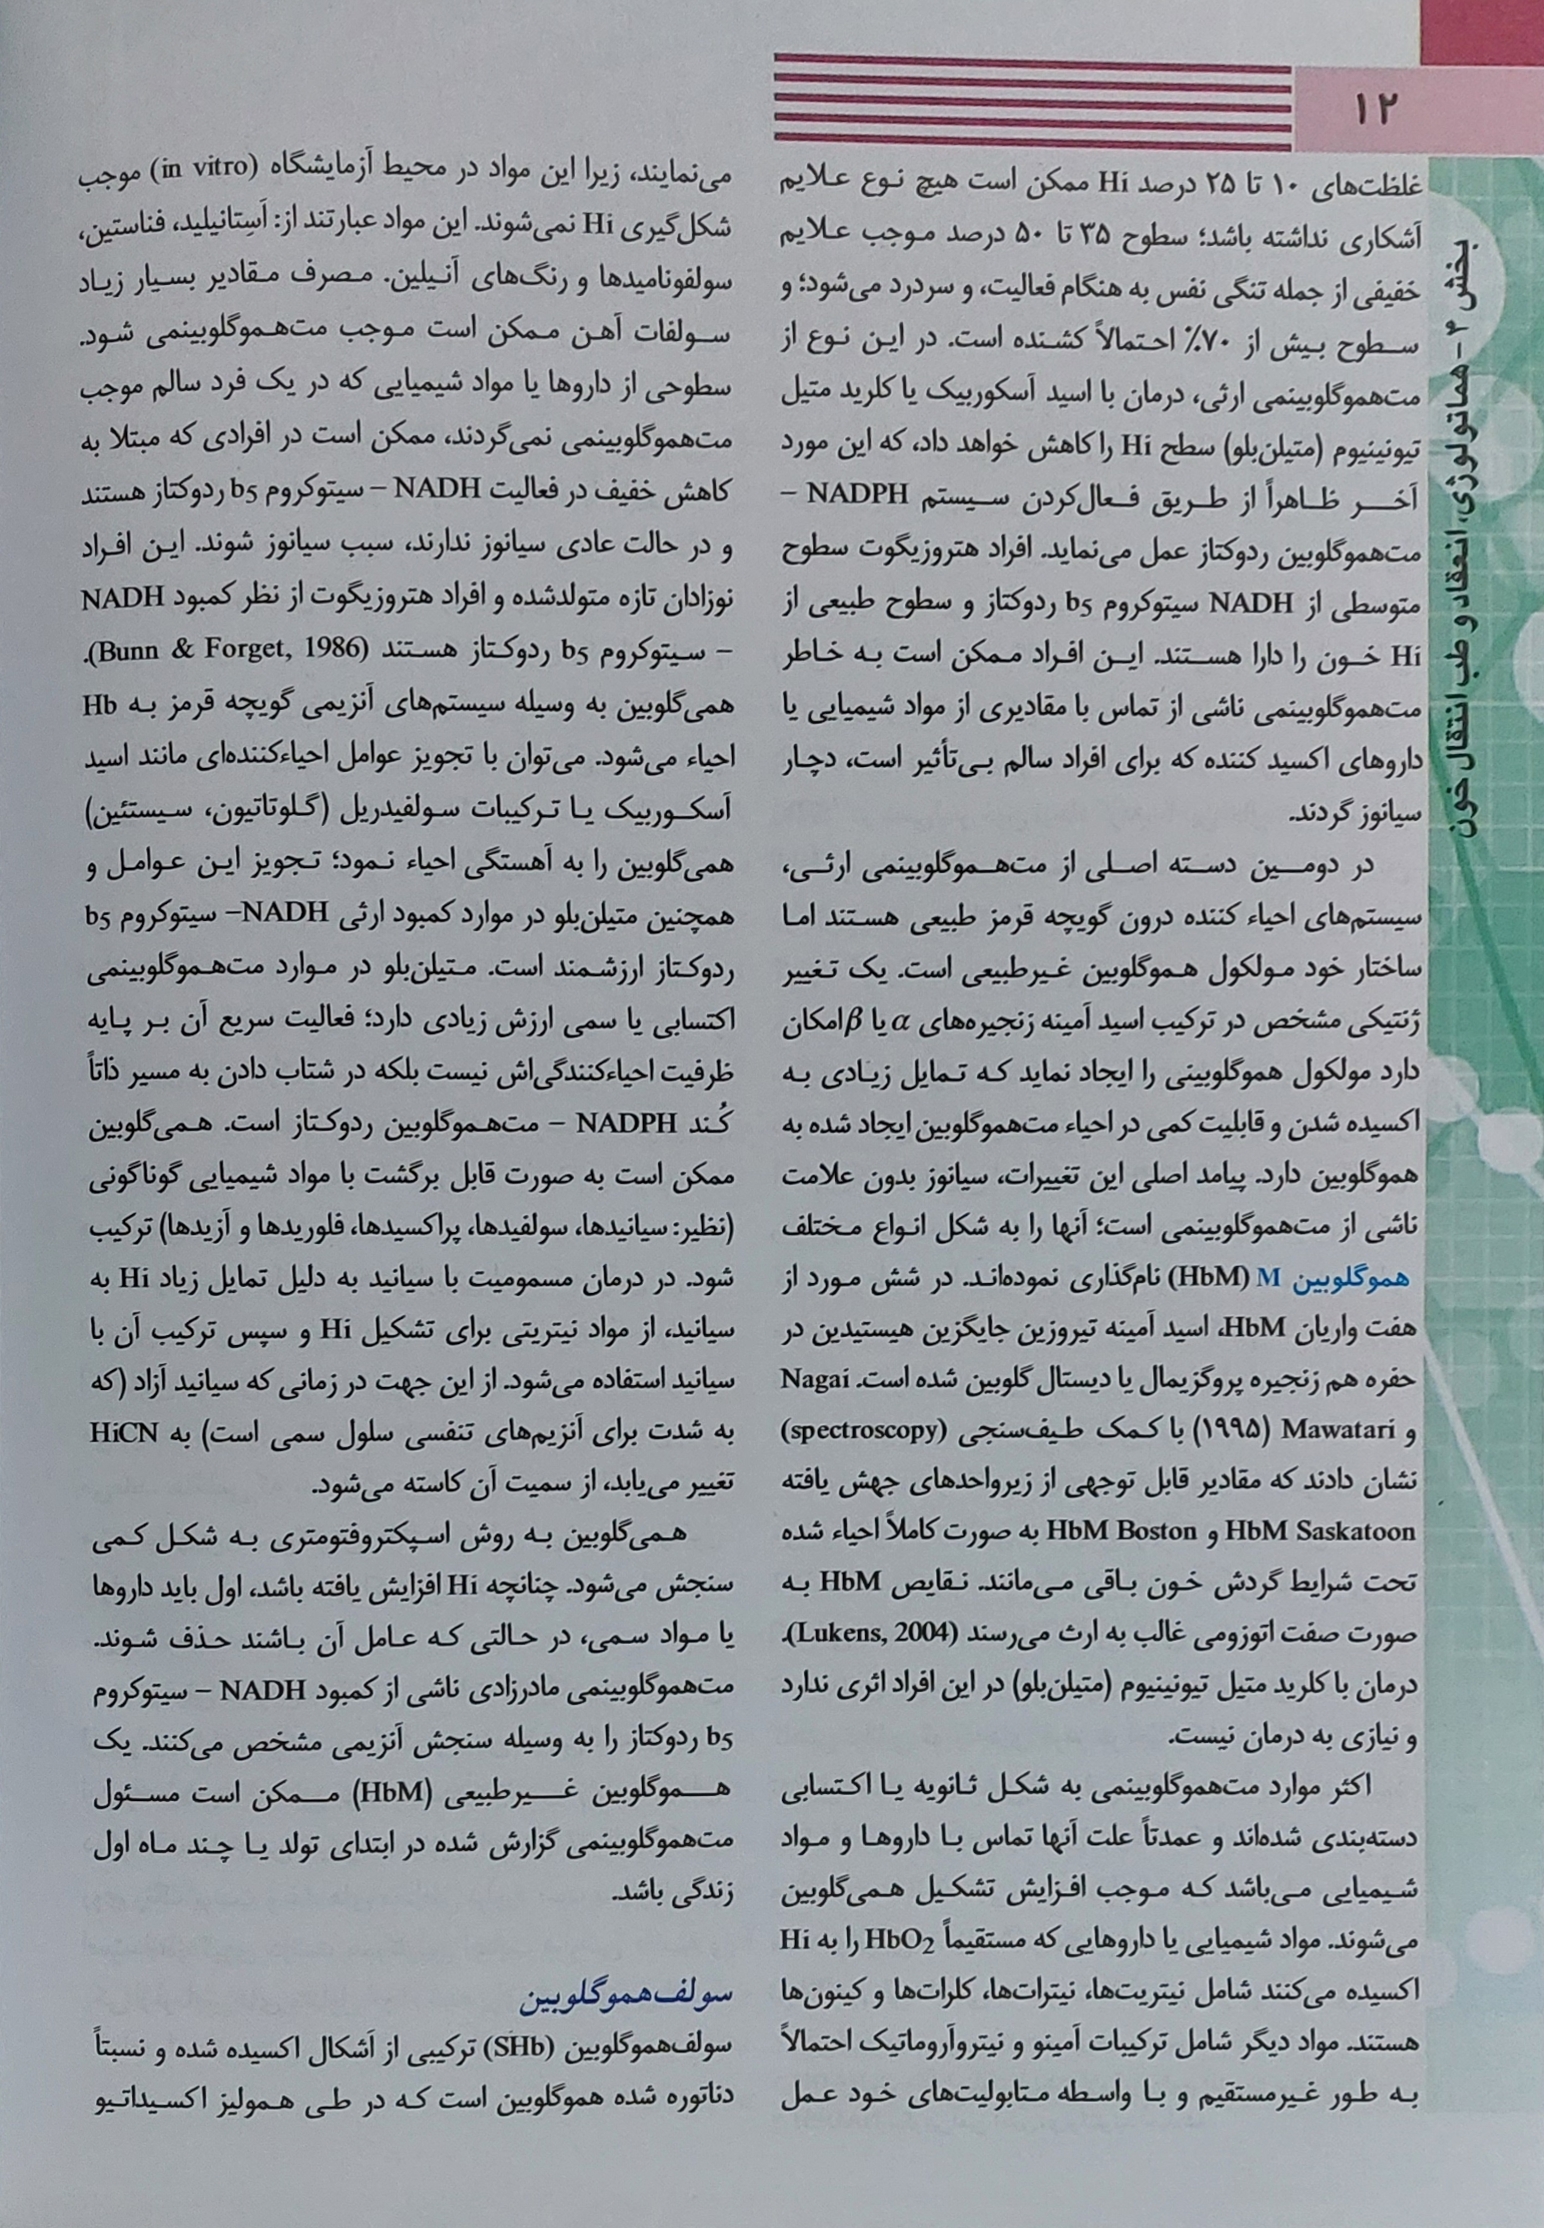 ۱۲
بخش ۴ - هماتولوژی، انعقاد و طب انتقال خون
غلظت‌های ۱۰ تا ۲۵ درصد Hi ممکن است هیچ نوع علایم
آشکاری نداشته باشد؛ سطوح ۳۵ تا ۵۰ درصد موجب علایم
خفیفی از جمله تنگی نفس به هنگام فعالیت، و سردرد می‌شود؛ و
سطوح بیش از ۷۰٪ احتمالاً کشنده است. در این نوع از
مت‌هموگلوبینمی ارثی، درمان با اسید آسکوربیک یا کلرید متیل
تیونینیوم (متیلن‌بلو) سطح Hi را کاهش خواهد داد، که این مورد
آخر ظاهراً از طریق فعال‌کردن سیستم NADPH –
مت‌هموگلوبین ردوکتاز عمل می‌نماید. افراد هتروزیگوت سطوح
متوسطی از NADH سیتوکروم b5 ردوکتاز و سطوح طبیعی از
Hi خون را دارا هستند. این افراد ممکن است به خاطر
مت‌هموگلوبینمی ناشی از تماس با مقادیری از مواد شیمیایی یا
داروهای اکسید کننده که برای افراد سالم بی‌تأثیر است، دچار
سیانوز گردند.
در دومین دسته اصلی از مت‌هموگلوبینمی ارثی،
سیستم‌های احیاء کننده درون گویچه قرمز طبیعی هستند اما
ساختار خود مولکول هموگلوبین غیرطبیعی است. یک تغییر
ژنتیکی مشخص در ترکیب اسید آمینه زنجیره‌های α یا β امکان
دارد مولکول هموگلوبینی را ایجاد نماید که تمایل زیادی به
اکسیده شدن و قابلیت کمی در احیاء مت‌هموگلوبین ایجاد شده به
هموگلوبین دارد. پیامد اصلی این تغییرات، سیانوز بدون علامت
ناشی از مت‌هموگلوبینمی است؛ آنها را به شکل انواع مختلف
هموگلوبین M (HbM) نام‌گذاری نموده‌اند. در شش مورد از
هفت واریان HbM، اسید آمینه تیروزین جایگزین هیستیدین در
حفره هم زنجیره پروگزیمال یا دیستال گلوبین شده است. Nagai
و Mawatari (۱۹۹۵) با کمک طیف‌سنجی (spectroscopy)
نشان دادند که مقادیر قابل توجهی از زیرواحدهای جهش یافته
HbM Saskatoon و HbM Boston به صورت کاملاً احیاء شده
تحت شرایط گردش خون باقی می‌مانند. نقایص HbM به
صورت صفت اتوزومی غالب به ارث می‌رسند (Lukens, 2004).
درمان با کلرید متیل تیونینیوم (متیلن‌بلو) در این افراد اثری ندارد
و نیازی به درمان نیست.
اکثر موارد مت‌هموگلوبینمی به شکل ثانویه یا اکتسابی
دسته‌بندی شده‌اند و عمدتاً علت آنها تماس با داروها و مواد
شیمیایی می‌باشد که موجب افزایش تشکیل همی‌گلوبین
می‌شوند. مواد شیمیایی یا داروهایی که مستقیماً HbO2 را به Hi
اکسیده می‌کنند شامل نیتریت‌ها، نیترات‌ها، کلرات‌ها و کینون‌ها
هستند. مواد دیگر شامل ترکیبات آمینو و نیتروآروماتیک احتمالاً
به طور غیرمستقیم و با واسطه متابولیت‌های خود عمل
می‌نمایند، زیرا این مواد در محیط آزمایشگاه (in vitro) موجب
شکل‌گیری Hi نمی‌شوند. این مواد عبارتند از: اَسِتانیلید، فناستین،
سولفونامیدها و رنگ‌های آنیلین. مصرف مقادیر بسیار زیاد
سولفات آهن ممکن است موجب مت‌هموگلوبینمی شود.
سطوحی از داروها یا مواد شیمیایی که در یک فرد سالم موجب
مت‌هموگلوبینمی نمی‌گردند، ممکن است در افرادی که مبتلا به
کاهش خفیف در فعالیت NADH – سیتوکروم b5 ردوکتاز هستند
و در حالت عادی سیانوز ندارند، سبب سیانوز شوند. این افراد
نوزادان تازه متولدشده و افراد هتروزیگوت از نظر کمبود NADH
– سیتوکروم b5 ردوکتاز هستند (Bunn & Forget, 1986).
همی‌گلوبین به وسیله سیستم‌های آنزیمی گویچه قرمز به Hb
احیاء می‌شود. می‌توان با تجویز عوامل احیاءکننده‌ای مانند اسید
آسکوربیک یا ترکیبات سولفیدریل (گلوتاتیون، سیستئین)
همی‌گلوبین را به آهستگی احیاء نمود؛ تجویز این عوامل و
همچنین متیلن‌بلو در موارد کمبود ارثی NADH– سیتوکروم b5
ردوکتاز ارزشمند است. متیلن‌بلو در موارد مت‌هموگلوبینمی
اکتسابی یا سمی ارزش زیادی دارد؛ فعالیت سریع آن بر پایه
ظرفیت احیاءکنندگی‌اش نیست بلکه در شتاب دادن به مسیر ذاتاً
کُند NADPH – مت‌هموگلوبین ردوکتاز است. همی‌گلوبین
ممکن است به صورت قابل برگشت با مواد شیمیایی گوناگونی
(نظیر: سیانیدها، سولفیدها، پراکسیدها، فلوریدها و آزیدها) ترکیب
شود. در درمان مسمومیت با سیانید به دلیل تمایل زیاد Hi به
سیانید، از مواد نیتریتی برای تشکیل Hi و سپس ترکیب آن با
سیانید استفاده می‌شود. از این جهت در زمانی که سیانید آزاد (که
به شدت برای آنزیم‌های تنفسی سلول سمی است) به HiCN
تغییر می‌یابد، از سمیت آن کاسته می‌شود.
همی‌گلوبین به روش اسپکتروفتومتری به شکل کمی
سنجش می‌شود. چنانچه Hi افزایش یافته باشد، اول باید داروها
یا مواد سمی، در حالتی که عامل آن باشند حذف شوند.
مت‌هموگلوبینمی مادرزادی ناشی از کمبود NADH – سیتوکروم
b5 ردوکتاز را به وسیله سنجش آنزیمی مشخص می‌کنند. یک
هموگلوبین غیرطبیعی (HbM) ممکن است مسئول
مت‌هموگلوبینمی گزارش شده در ابتدای تولد یا چند ماه اول
زندگی باشد.
سولف‌هموگلوبین
سولف‌هموگلوبین (SHb) ترکیبی از اَشکال اکسیده شده و نسبتاً
دناتوره شده هموگلوبین است که در طی همولیز اکسیداتیو